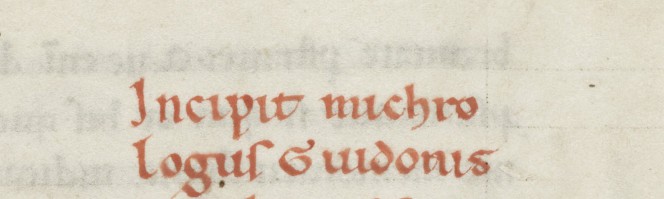 Incipit michro
loguſ Guidonis